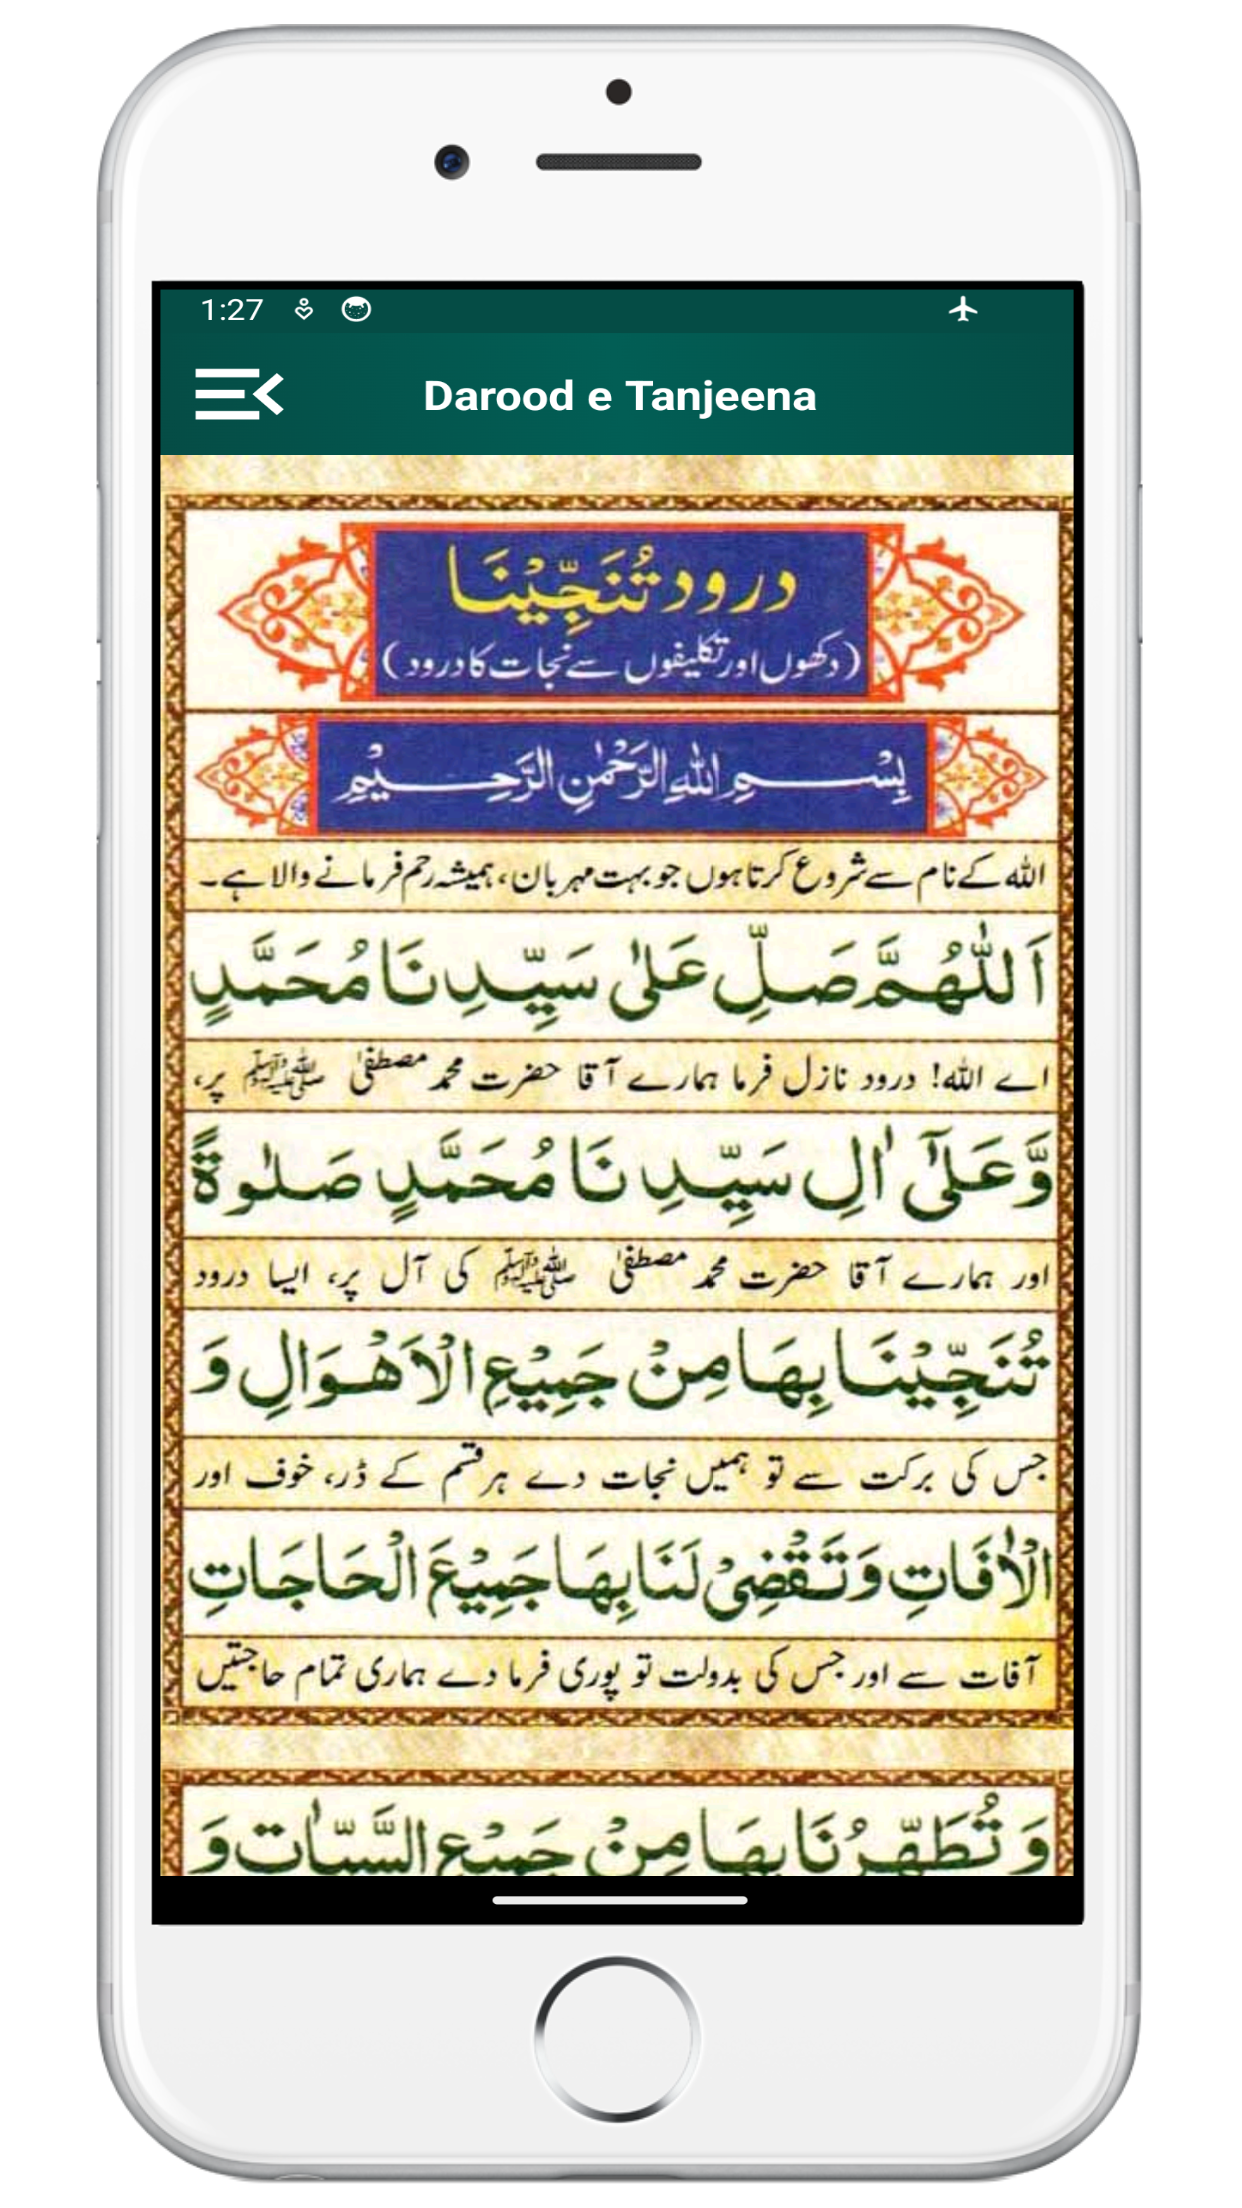 1:27
Darood e Tanjeena
درود تُنَجِّیْنَا
(دکھوں اور تکلیفوں سے نجات کا درود)
بِسْمِ اللّٰهِ الرَّحْمٰنِ الرَّحِیْمِ
الله کے نام سے شروع کرتا ہوں جو بہت مہربان، ہمیشہ رحم فرمانے والا ہے۔
اَللّٰهُمَّ صَلِّ عَلٰی سَیِّدِنَا مُحَمَّدٍ
اے الله! درود نازل فرما ہمارے آقا حضرت محمد مصطفیٰ ﷺ پر،
وَّعَلٰۤی اٰلِ سَیِّدِنَا مُحَمَّدٍ صَلٰوةً
اور ہمارے آقا حضرت محمد مصطفیٰ ﷺ کی آل پر، ایسا درود
تُنَجِّیْنَا بِهَا مِنْ جَمِیْعِ الْاَهْوَالِ وَ
جس کی برکت سے تو ہمیں نجات دے ہر قسم کے ڈر، خوف اور
الْاٰفَاتِ وَتَقْضِیْ لَنَا بِهَا جَمِیْعَ الْحَاجَاتِ
آفات سے اور جس کی بدولت تو پوری فرما دے ہماری تمام حاجتیں
وَ تُطَهِّرُنَا بِهَا مِنْ جَمِیْعِ السَّیِّاٰتِ وَ